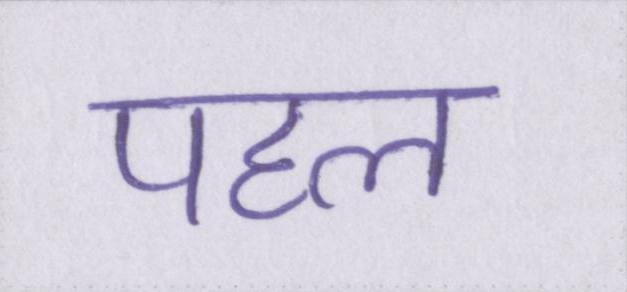 पहल